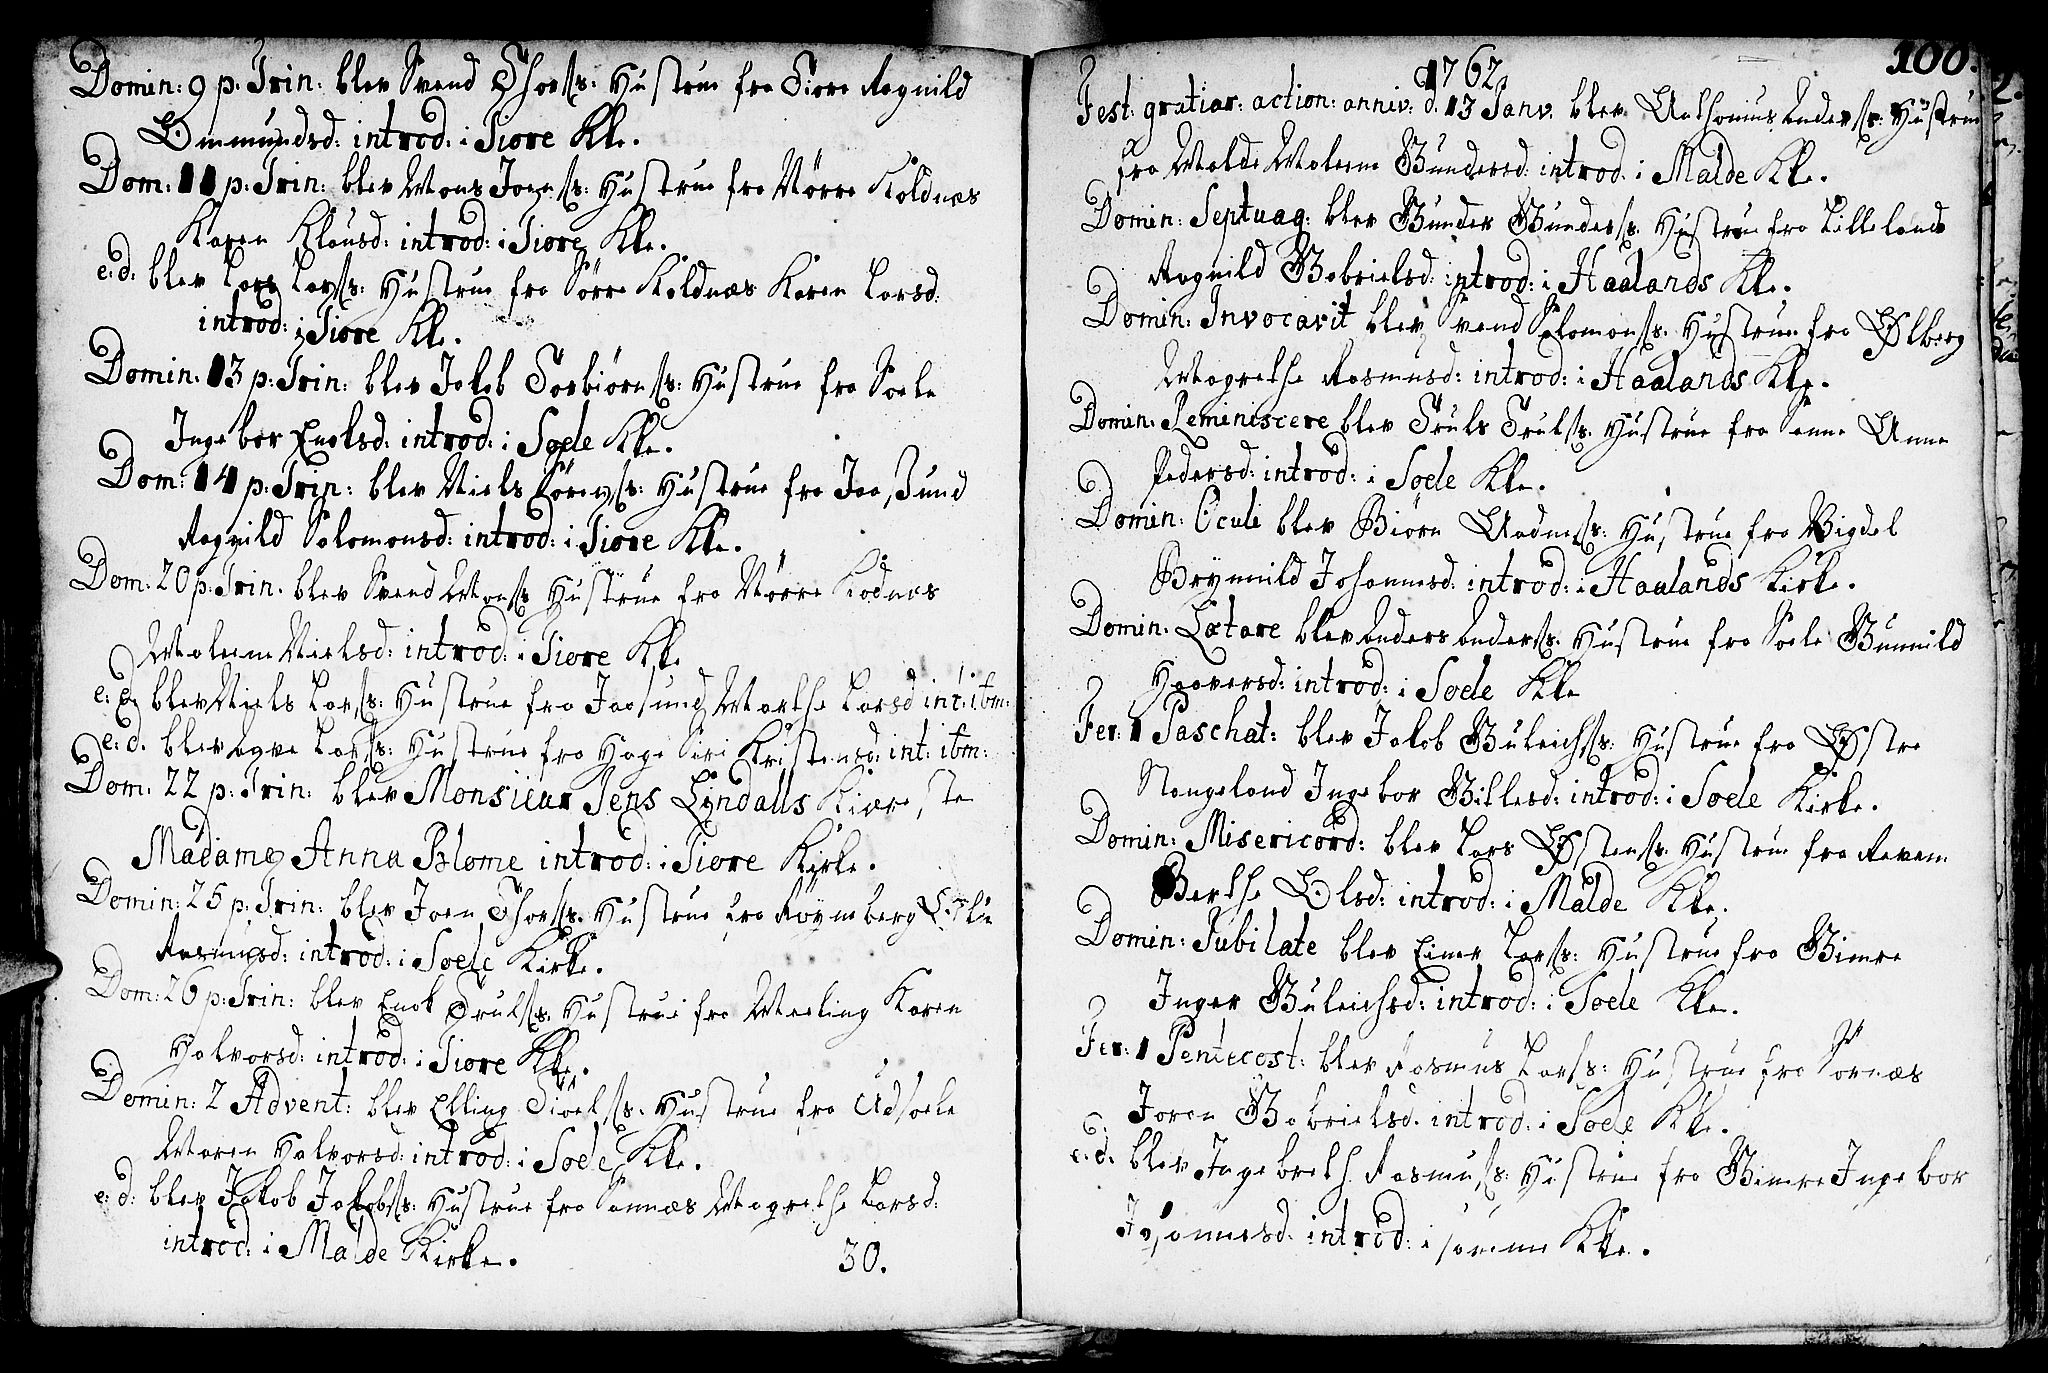 Domin: 9 p. Trin: blev Svend Thors/s: Hustrue fra Tiore Ragnild
Ommundsd: introd: i Tiore Kke.
Dom: 11 p: Trin: blev Mons Joens/s: Hustrue fra Nörre Koldnæs
Karen Clausd: introd: i Tiore Kke.
e: d: blev Lars Lars/s: Hustrue fra Sörre Koldnæs Karen Larsd:
introd: i Tiore Kke.
Domin: 13 p: Trin: blev Jakob Torbiörns/s: Hustrue fra Soele
Ingebor Enoksd: introd: i Soele Kke.
Dom: 14 p: Trin: blev Niels Sörens/s: Hustrue fra Jaasund
Ragnild Salomonsd: introd: i Tiore Kke.
Dom: 20 p: Trin. blev Svend Mons/s Hustrue fra Nörre Kodnæs
Malene Nielsd: introd: i Tiore Kke
e: d. blev Niels Lars/s: Hustrue fra Jaasund Marthe Larsd int: ibm:
e: d. blev Lars/s: Hustrue fra Hage Siri Kristensd: int: ibm:
Dom: 22 p: Trin: blev Monsieur Jens Lyndalls Kiæreste
Madame Anna Blome introd: i Tiore Kirke.
Domin: 25 p: Trin: blev Joen Thors/s. Hustrue fra Röyneberg
Rasmusd: introd: i Soele Kirke.
Dom: 26 p: Trin: blev Enok Truls/s. Hustrue fra Meeling Karen
Halvorsd: introd: i Tiore Kke.
Domin: 2 Advent: blev Elling Tiöls/s. Hustrue fra Udsoele
Maren Halvorsd: introd: i Soele Kke.
e: d: blev Jakob Jakobs/s: Hustrue fra Sannæs Magrethe Larsd:
introd: i Malde Kirke. 30.
100.
1762
Fest: gratiar: action: anniv: d. 13 Janv. blev Anthonius Anders/s: Hustrue
fra Malde Malene Gundersd: introd: i Malde Kke.
Domin: Septuag: blev Gunder Gunders/s: Hustrue fra Lilleland
Ragnild Gabrielsd: introd: i Haalands Kke.
Domin: Invocavit blev Svend Salomons/s: Hustrue fra Ølberg
Magrethe Rasmusd: introd: i Haalands Kke.
Domin: Reminiscere blev Truls Truls/s: Hustrue fra Sønne Anne
Pedersd: introd: i Soele Kke.
Domin: Oculi blev Biörn Aadnes/s: Hustrue fra Vigdel
Brynnild Johannesd: introd: i Haalands Kirke.
Domin. Lætare blev Anders Anders/s: Hustrue fra Soele Gunnild
Haaversd: introd: i Soele Kke
Fer: 1 Paschat: blev Jakob Guleichs/s: Hustrue fra Østre
Stangeland Ingebor Gitlesd: introd: i Soele Kirke.
Domin: Misericord: blev Lars Østens/s: Hustrue fra Revem
Berthe Olsd: introd: i Malde Kke.
Domin: Jubilate blev Einer Lars/s: Hustrue fra Gimre
Inger Guleichsd: introd: i Soele Kke.
Fer: 1 Pentecost: blev Rasmus Lars/s: Hustrue fra Sörnæs
Joren Gabrielsd. introd: i Soele Kke.
e: d. blev Ingebreth Rasmus/s: Hustrue fra Gimre Ingebor
introd: i samme Kke.